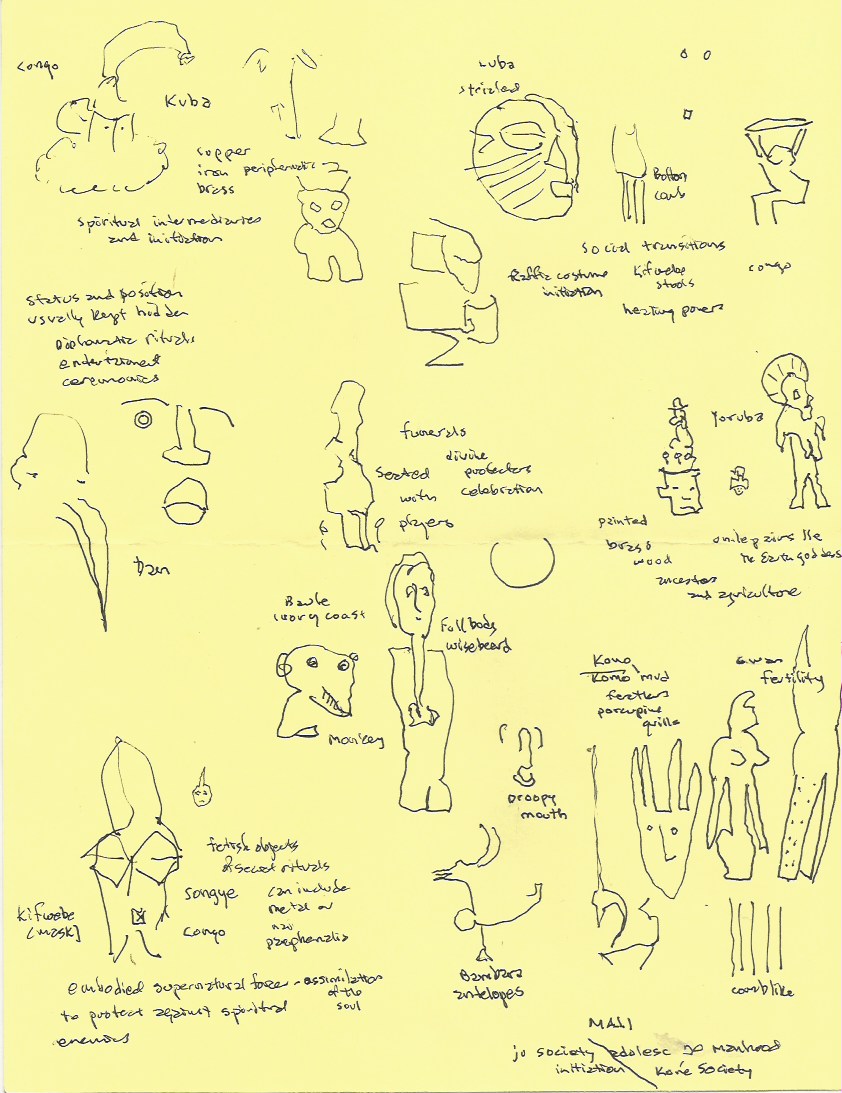 Congo
Kuba
copper
iron
brass
spiritual intermediaries
and initiation
status and position
usually kept hidden
Diplomatic rituals
ceremonies
Luba
Button
social transitions
costume
initiation
Kifwebe
stools
congo
healing powers
funerals
divine
seated protectors
with celebration
players
Yoruba
painted
brass
wood
the Earth goddess
ancestors
and agriculture
Dan
Baule
ivory coast
Full body
wise beard
monkey
Kono
Komo mud
feathers
porcupine
quills
fertility
Droopy
mouth
fetish objects
secret rituals
Songye
can include
metal or
Congo
Kifwebe
[mask]
embodied supernatural force - assimilation
of the
soul
to protect against spiritual
enemies
Bambara
antelopes
comblike
MALI
jo society adolesc to manhood
initiation
Kore Society